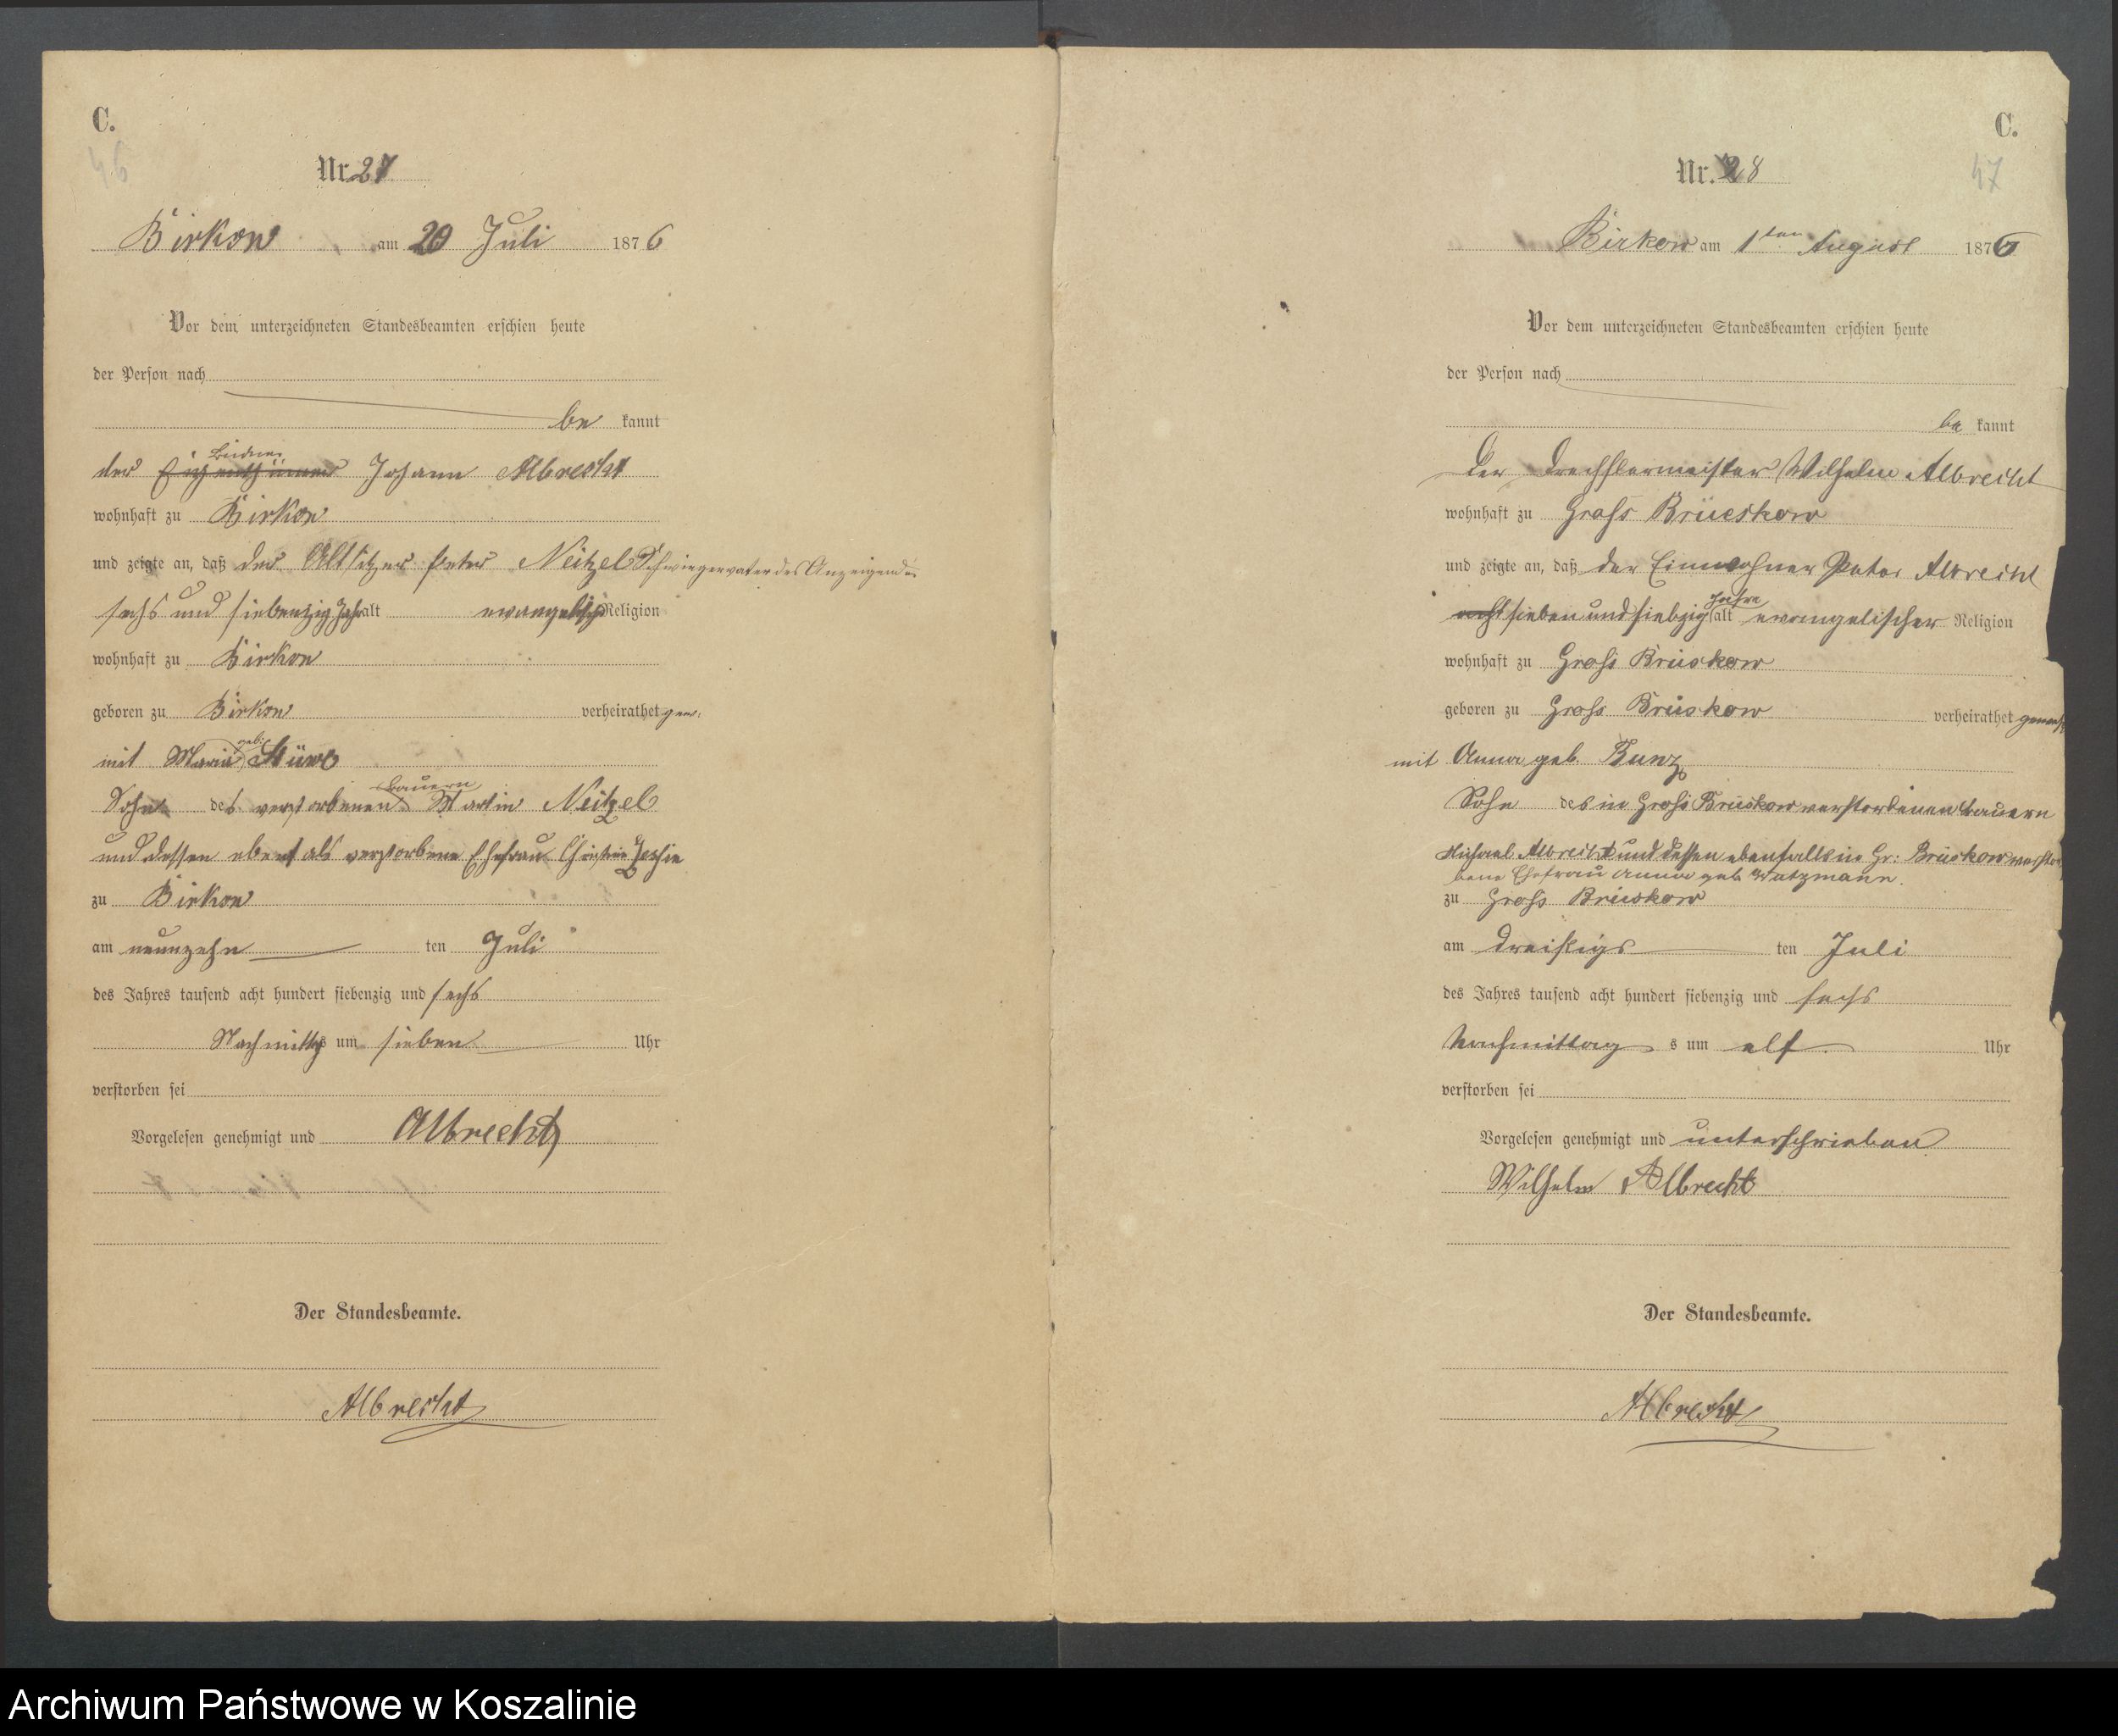 C.
46
Nr. 27
Birkow am 20 Juli 1876
Vor dem unterzeichneten Standesbeamten erschien heute
der Person nach
be kannt
Büdner
der Eigenthümer Johann Albrecht
wohnhaft zu Birkow
und zeigte an, daß der Altsitzer Peter Neitzel Schwiegervater des Anzeigenden
sechs und siebenzig Jahr alt evangelisch Religion
wohnhaft zu Birkow
geboren zu Birkow verheirathet gew.
geb:
mit Maria Stüwe
Bauern
Sohn des verstorbenen Martin Neitzel
und dessen ebenfals verstorbene Ehefrau Christine
zu Birkow
am neunzehn ten Juli
des Jahres tausend acht hundert siebenzig und sechs
Nachmittags um sieben Uhr
verstorben sei
Vorgelesen genehmigt und Albrecht
Der Standesbeamte.
Albrecht
C.
47
Nr. 28
Birkow am 1ten August 1876
Vor dem unterzeichneten Standesbeamten erschien heute
der Person nach
be kannt
Der Drechslermeister Wilhelm Albrecht
wohnhaft zu Gross Brüeskow
und zeigte an, daß der Einwohner Peter Albrecht
Jahre
acht sieben und siebzig alt evangelischer Religion
wohnhaft zu Gross Brüskow
geboren zu Gross Brüskow verheirathet gewes
mit Anna geb. Bunz
Sohn des in Gross Brüskow verstorbenen Bauern
Michael Albrecht und dessen ebenfalls in Gr: Brüskow verstor
bene Ehefrau Anna geb. Watzmann.
zu Gross Brüskow
am dreisigs ten Juli
des Jahres tausend acht hundert siebenzig und sechs
Nachmittag s um elf Uhr
verstorben sei
Vorgelesen genehmigt und unterschrieben
Wilhelm Albrecht
Der Standesbeamte.
Albrecht
Archiwum Państwowe w Koszalinie